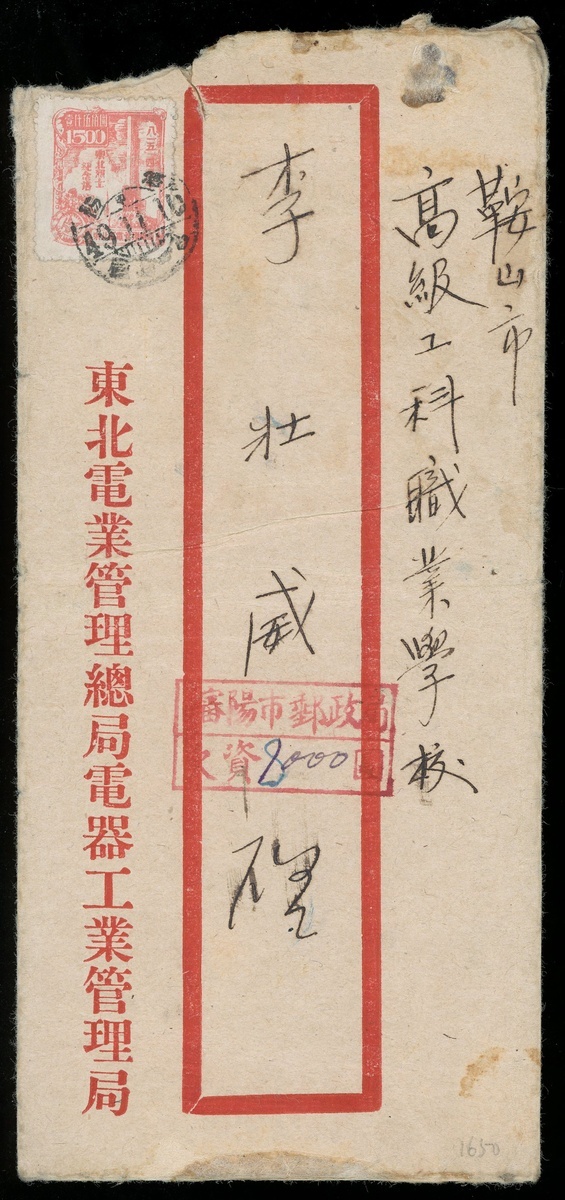 鞍山市
高級工科職業學校
李壯威 啓
東北電業管理總局電器工業管理局
瀋陽市郵政局
欠資8000圓
1500
八一五
49.11.10
1650